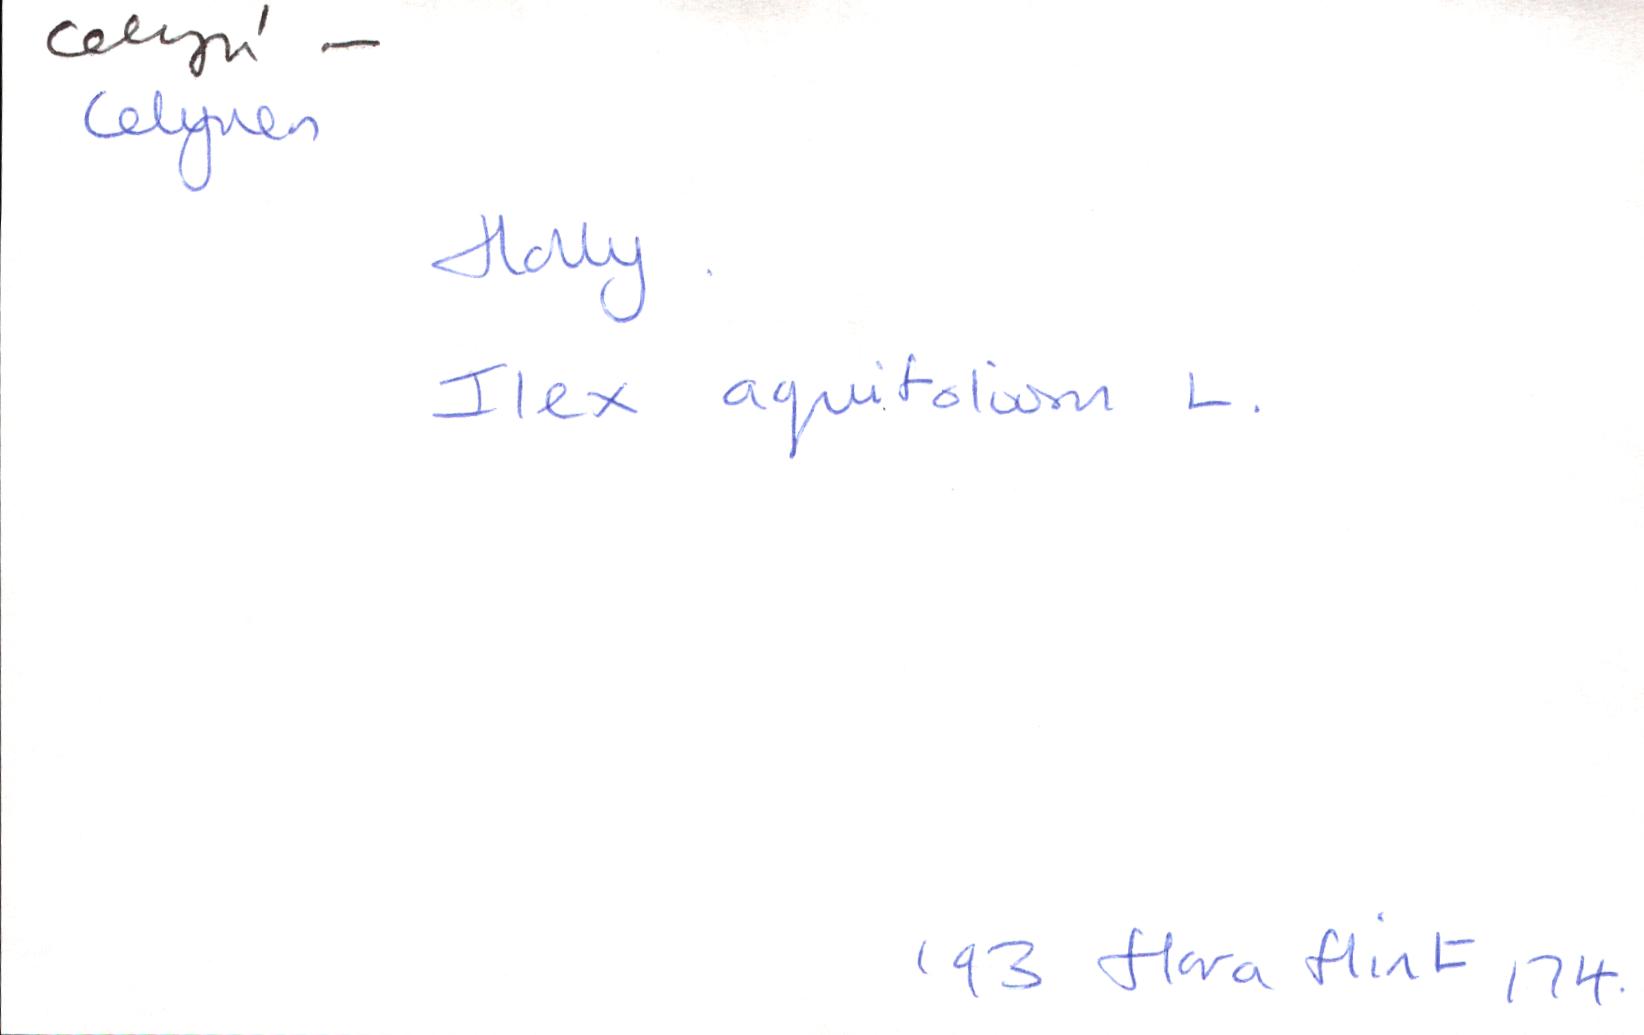 celyn' —
Celynen
Holly.
Ilex aquifolium L.
'93 Flora Flint 174.